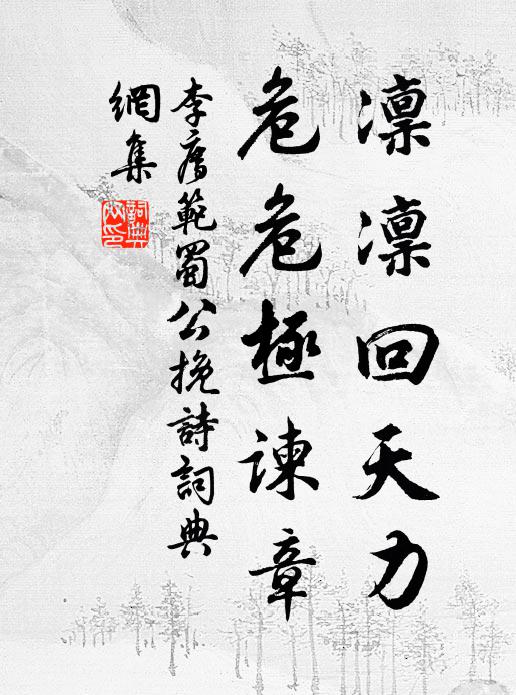 凜凜回天力
危危極諫章
李廌範蜀公挽詩詞典
網集